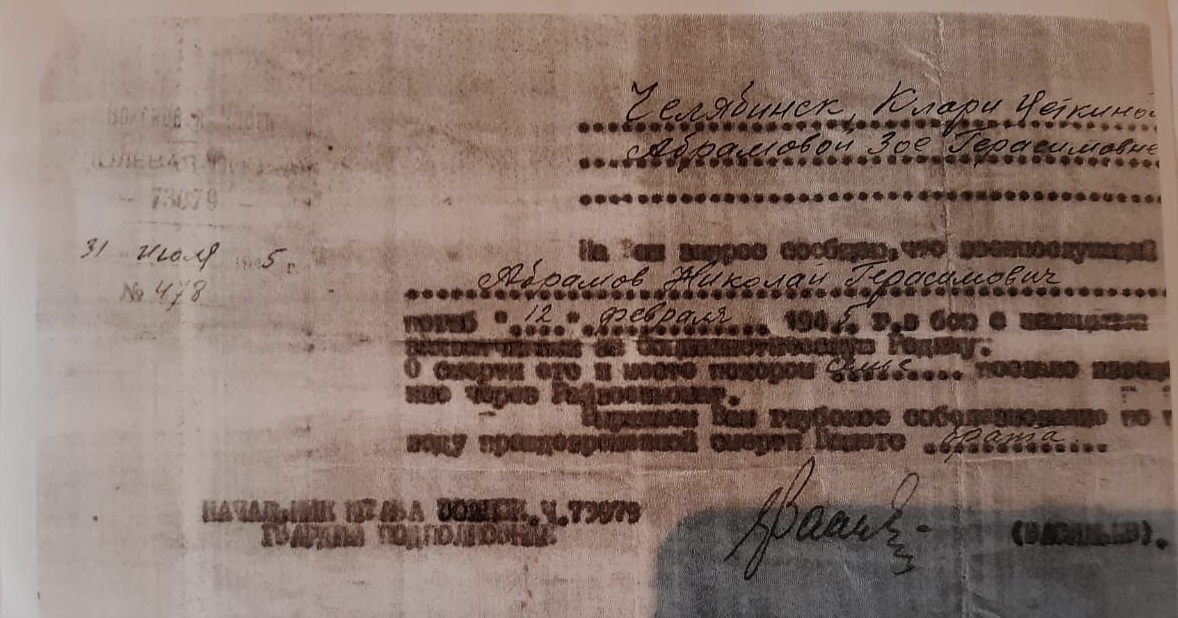 Челябинск, Клары Цеткиной
Абрамовой Зое Герасимовне
ПОЛЕВАЯ
— 73079 —
31 июля 5 г.
№ 478
На запрос сообщаю, что военнослужащий
Абрамов Николай Герасимович
погиб "12" февраля 1945 г. в бою с немецкими
за Социалистическую Родину.
О смерти его и месте похорон семье послано
ние через Райвоенкомат.
Выражаем Вам глубокое соболезнование по
воду преждевременной смерти Вашего брата
НАЧАЛЬНИК ШТАБА ВОЙСК.Ч.73079
ГВАРДИИ ПОДПОЛКОВНИК